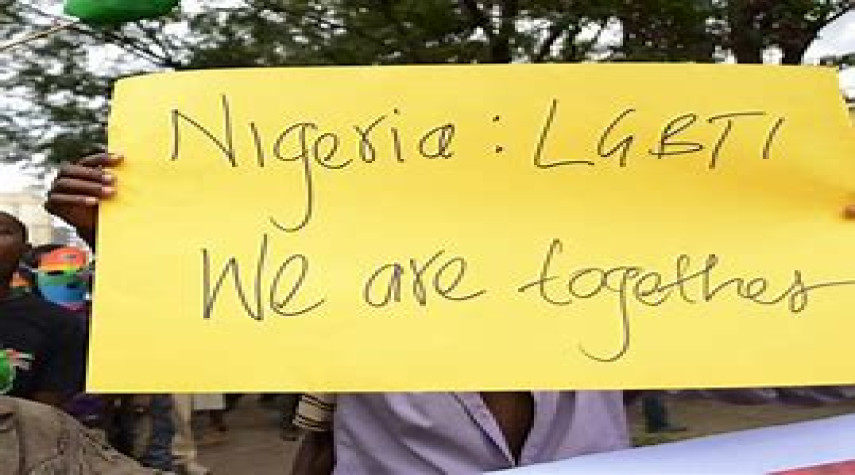 Nigeria: LGBTI
We are together